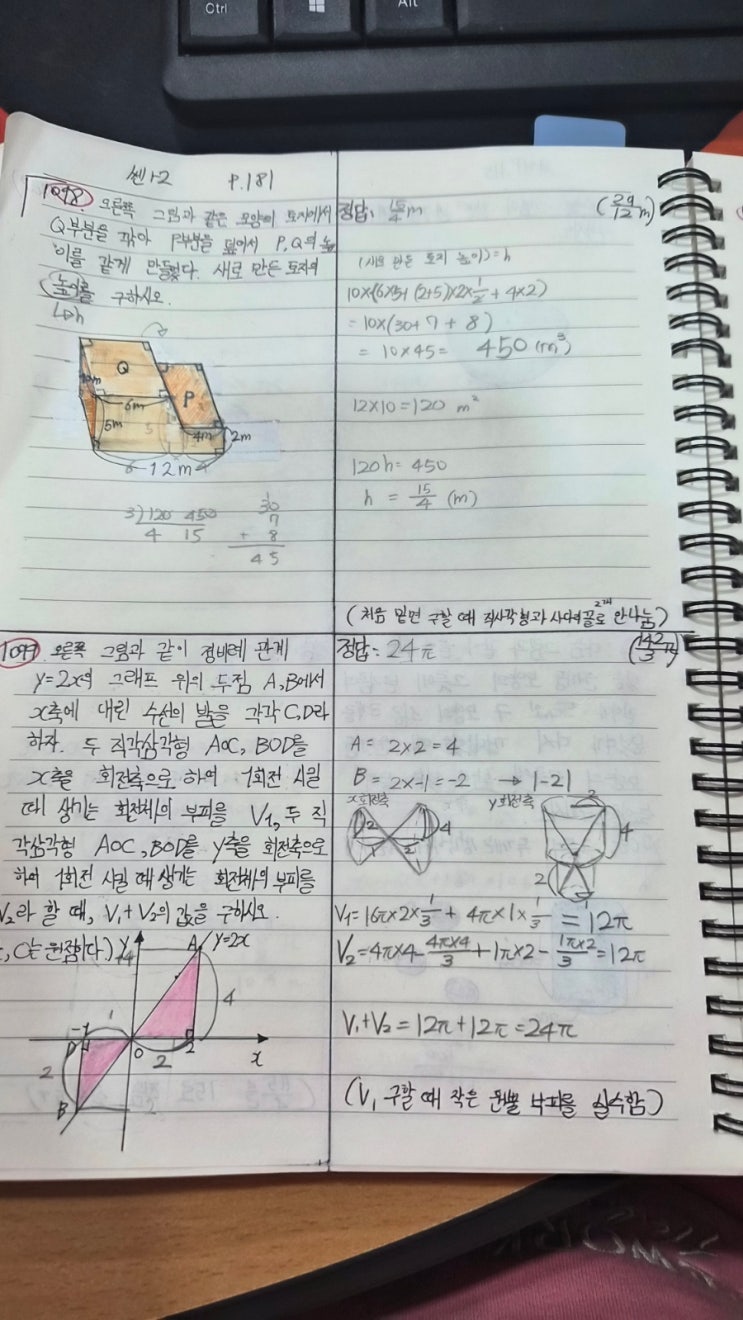 Ctrl
Alt
쎈 1-2 P.181
1098 오른쪽 그림과 같은 모양의 토지에서
Q부분을 깎아 P부분을 덮어서 P, Q의 높
이를 같게 만들었다. 새로 만든 토지의
높이를 구하시오.
↳h
Q
P
6m
5m
5
4m
2m
6 12m 4
3)120 450
4 15
30
7
+ 8
45
정답: 15/4 m
(29/12 m)
(새로 만든 토지 높이)=h
10×(6×5+(2+5)×2×1/2+4×2)
=10×(30+7+8)
=10×45= 450(m³)
12×10=120 m²
120h=450
h = 15/4 (m)
(처음 밑면 구할 때 직사각형과 사다리꼴로 안나눔)
1099. 오른쪽 그림과 같이 정비례 관계
y=2x의 그래프 위의 두점 A, B에서
x축에 내린 수선의 발을 각각 C, D라
하자. 두 직각삼각형 AOC, BOD를
x축을 회전축으로 하여 1회전 시킬
때 생기는 회전체의 부피를 V₁, 두 직
각삼각형 AOC, BOD를 y축을 회전축으로
하여 1회전 시킬 때 생기는 회전체의 부피를
V₂라 할 때, V₁+V₂의 값을 구하시오.
, O는 원점이다.)
y
4
A
y=2x
4
-1
1
D
O
2
2
x
2
B
-2
정답: 24π
(142/3 π)
A = 2×2=4
B = 2×-1=-2 → |-2|
x회전축
2
4
1
2
y회전축
2
4
2
V₁=16π×2×1/3 + 4π×1×1/3 = 12π
V₂=4π×4-4π×4/3+1π×2-1π×2/3=12π
V₁+V₂=12π+12π=24π
(V₁ 구할 때 작은 원뿔 부피를 실수함)